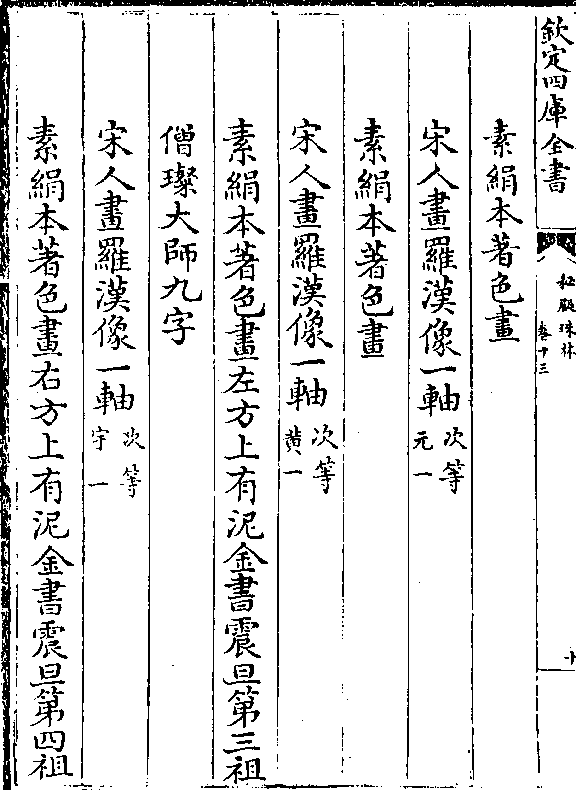 欽定四庫全書
秘殿珠林
卷十三
十
素絹本著色畫
宋人畫羅漢像一軸次等元一
素絹本著色畫
宋人畫羅漢像一軸次等黄一
素絹本著色畫左方上有泥金書震旦第三祖
僧璨大師九字
宋人畫羅漢像一軸次等宇一
素絹本著色畫右方上有泥金書震旦第四祖